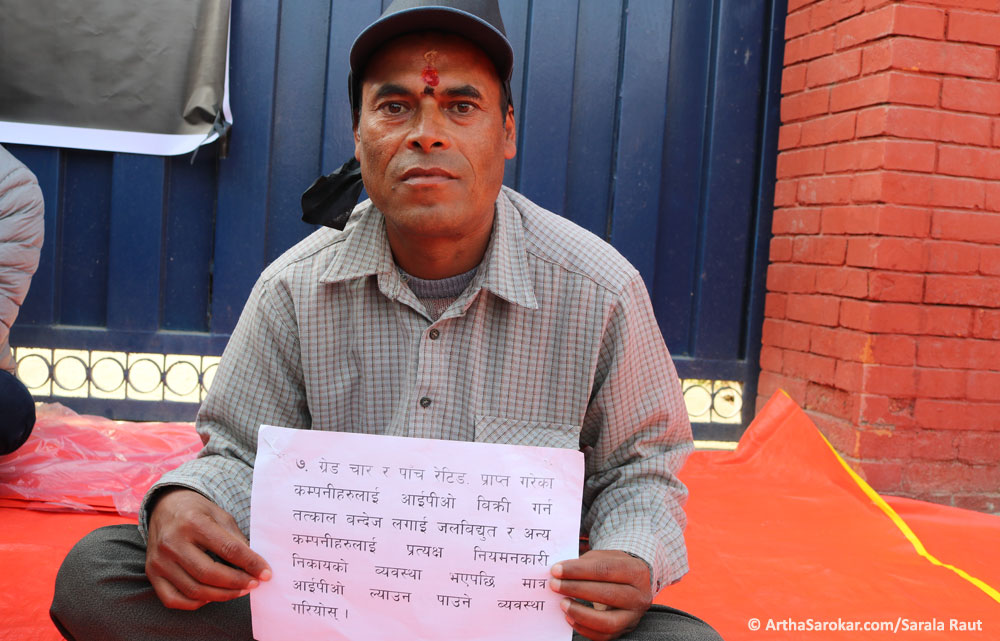 ७. ग्रेड चार र पाँच रेटिङ. प्राप्त गरेका
कम्पनीहरुलाई आईपीओ विक्री गर्न
तत्काल बन्देज लगाई जलबिद्युत र अन्य
कम्पनीहरुलाई प्रत्यक्ष नियमनकारी
निकायको व्यवस्था भएपछि मात्र
आईपीओ ल्याउन पाउने व्यवस्था
गरियोस् ।
© ArthaSarokar.com/Sarala Raut